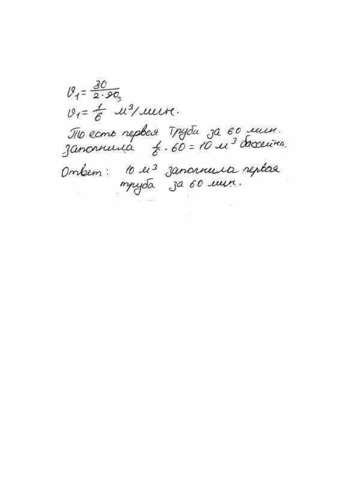 υ₁ = 30/(2·90)
υ₁ = 1/6 м³/мин.
То есть первая труба за 60 мин.
заполнила 1/6 · 60 = 10 м³ бассейна.
Ответ: 10 м³ заполнила первая
труба за 60 мин.